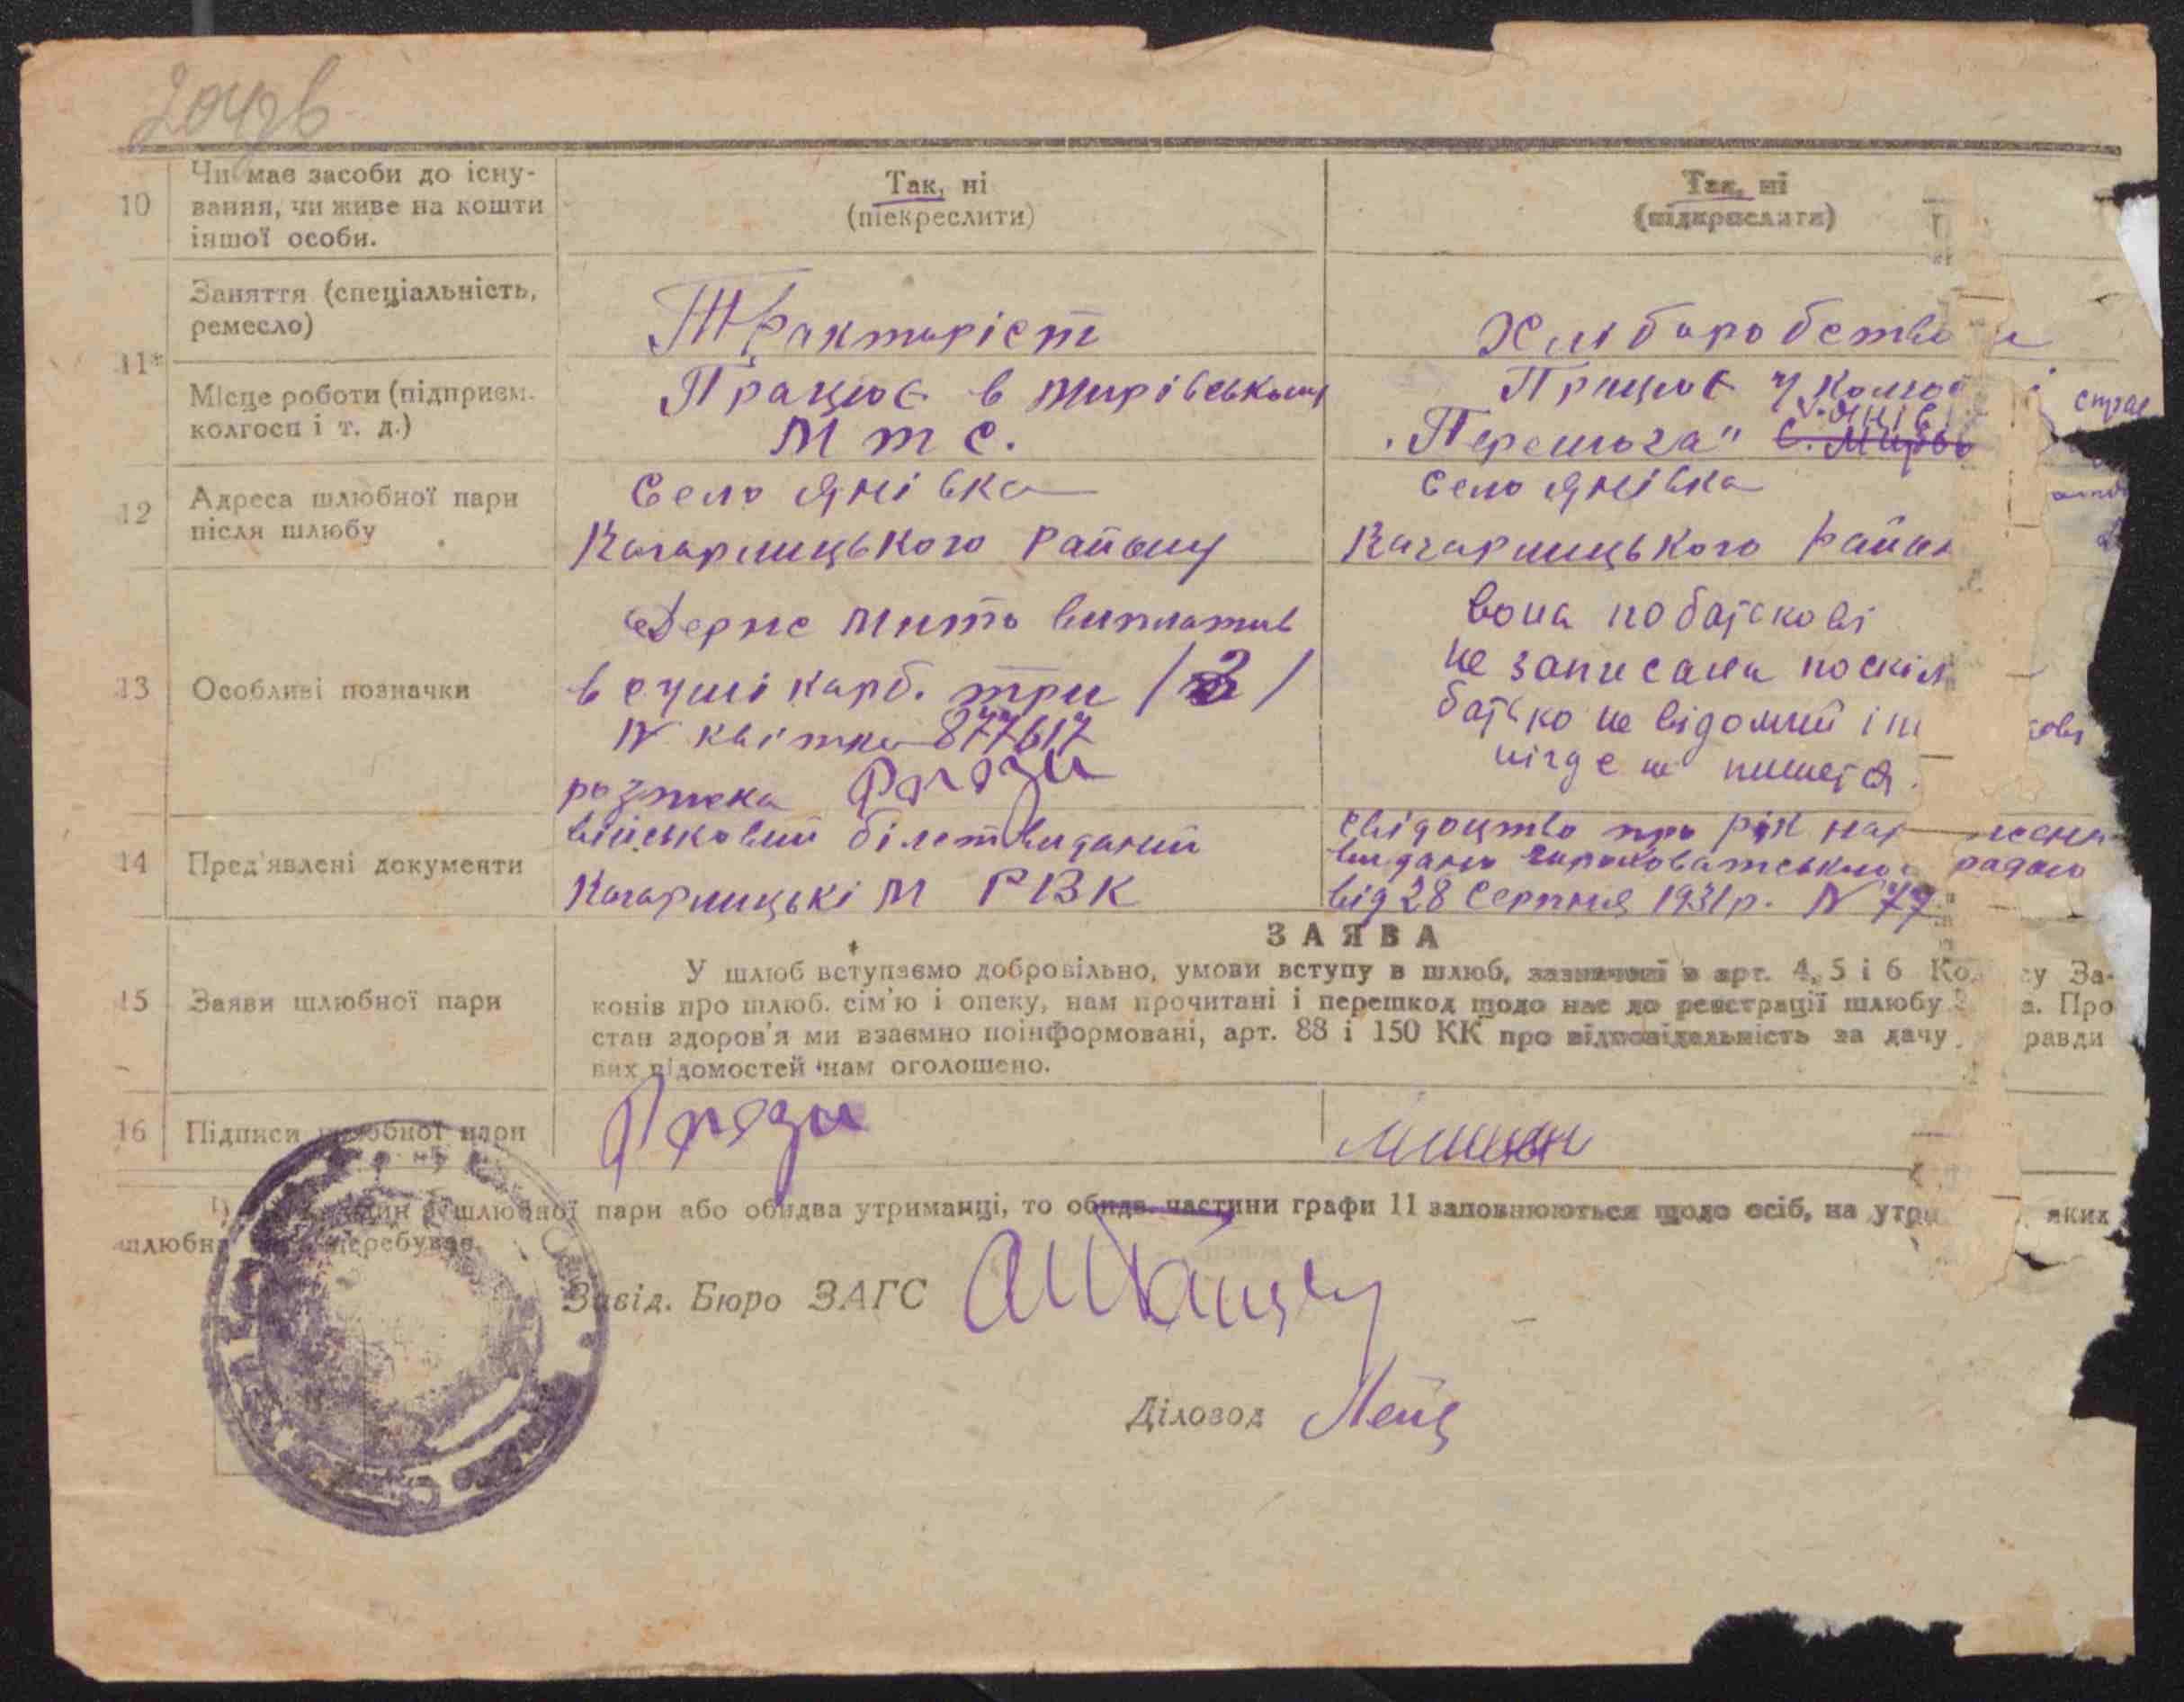 204зв
10 Чи має засоби до існу-
вання, чи живе на кошти
іншої особи.
Так, ні
(піекреслити)
Так, ні
(підкреслити)
11*
Заняття (спеціальність,
ремесло)
Тракторіст
Хліборобство
Місце роботи (підприєм.
колгосп і т. д.)
Працює в Мирівському
М т С.
Працює у
"Перемога" с. Мирів
12 Адреса шлюбної пари
після шлюбу
Село Янівка
Кагарлицького Району
Село Янівка
Кагарлицького
13 Особливі позначки
Держ мито виплатив
в сумі карб. три /3/
N квітка 877617
розписка
вона по батькові
не записана
батько не відомий і
нігде не пишется.
14 Пред'явлені документи
військовий білет виданий
Кагарлицькім РВК
свідоцтво про
видано радою
від 28 Серпня 1931р. N 77
ЗАЯВА
15 Заяви шлюбної пари
У шлюб вступаємо добровільно, умови вступу в шлюб, зазначені в арт. 4, 5 і 6 За-
конів про шлюб. сім'ю і опеку, нам прочитані і перешкод щодо нас до реєстрації шлюбу Про
стан здоров'я ми взаємно поінформовані, арт. 88 і 150 КК про відповідальність за дачу равди
вих відомостей нам оголошено.
16 Підписи шлюбної пари
пари або обидва утриманці, то обидв. частини графи 11 заповнюються щодо осіб, на яких
Завід. Бюро ЗАГС
Діловод